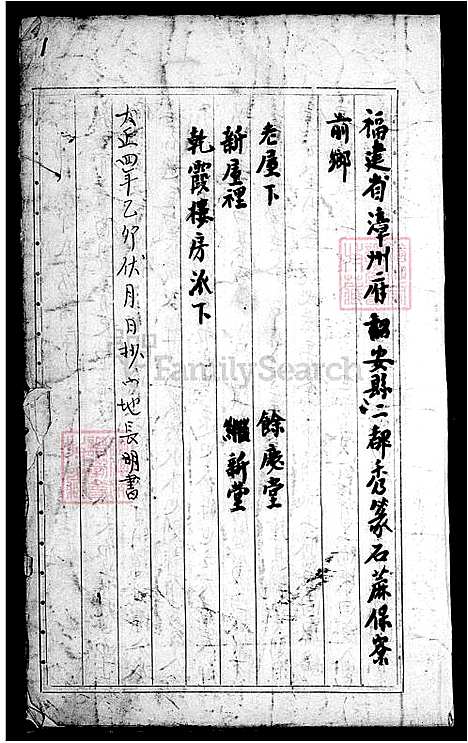 福建省漳州府詔安縣二都秀篆石蔴保寨
前鄉
老屋下 餘慶堂
新屋裡 繼新堂
乾霞樓房派下
大正四年乙卯伏月 日抄 地長明書
FamilySearch
1